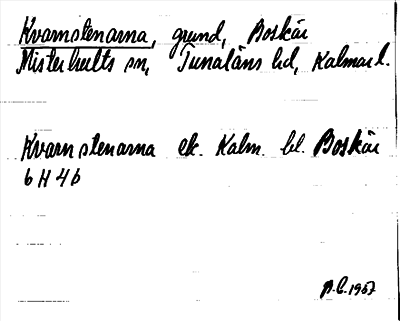 Kvarnstenarna, grund, Boskär
Misterhults sn, Tunaläns hd, Kalmar l.
Kvarnstenarna ek. Kalm. bl. Boskär
6 H 4b
B.C. 1957